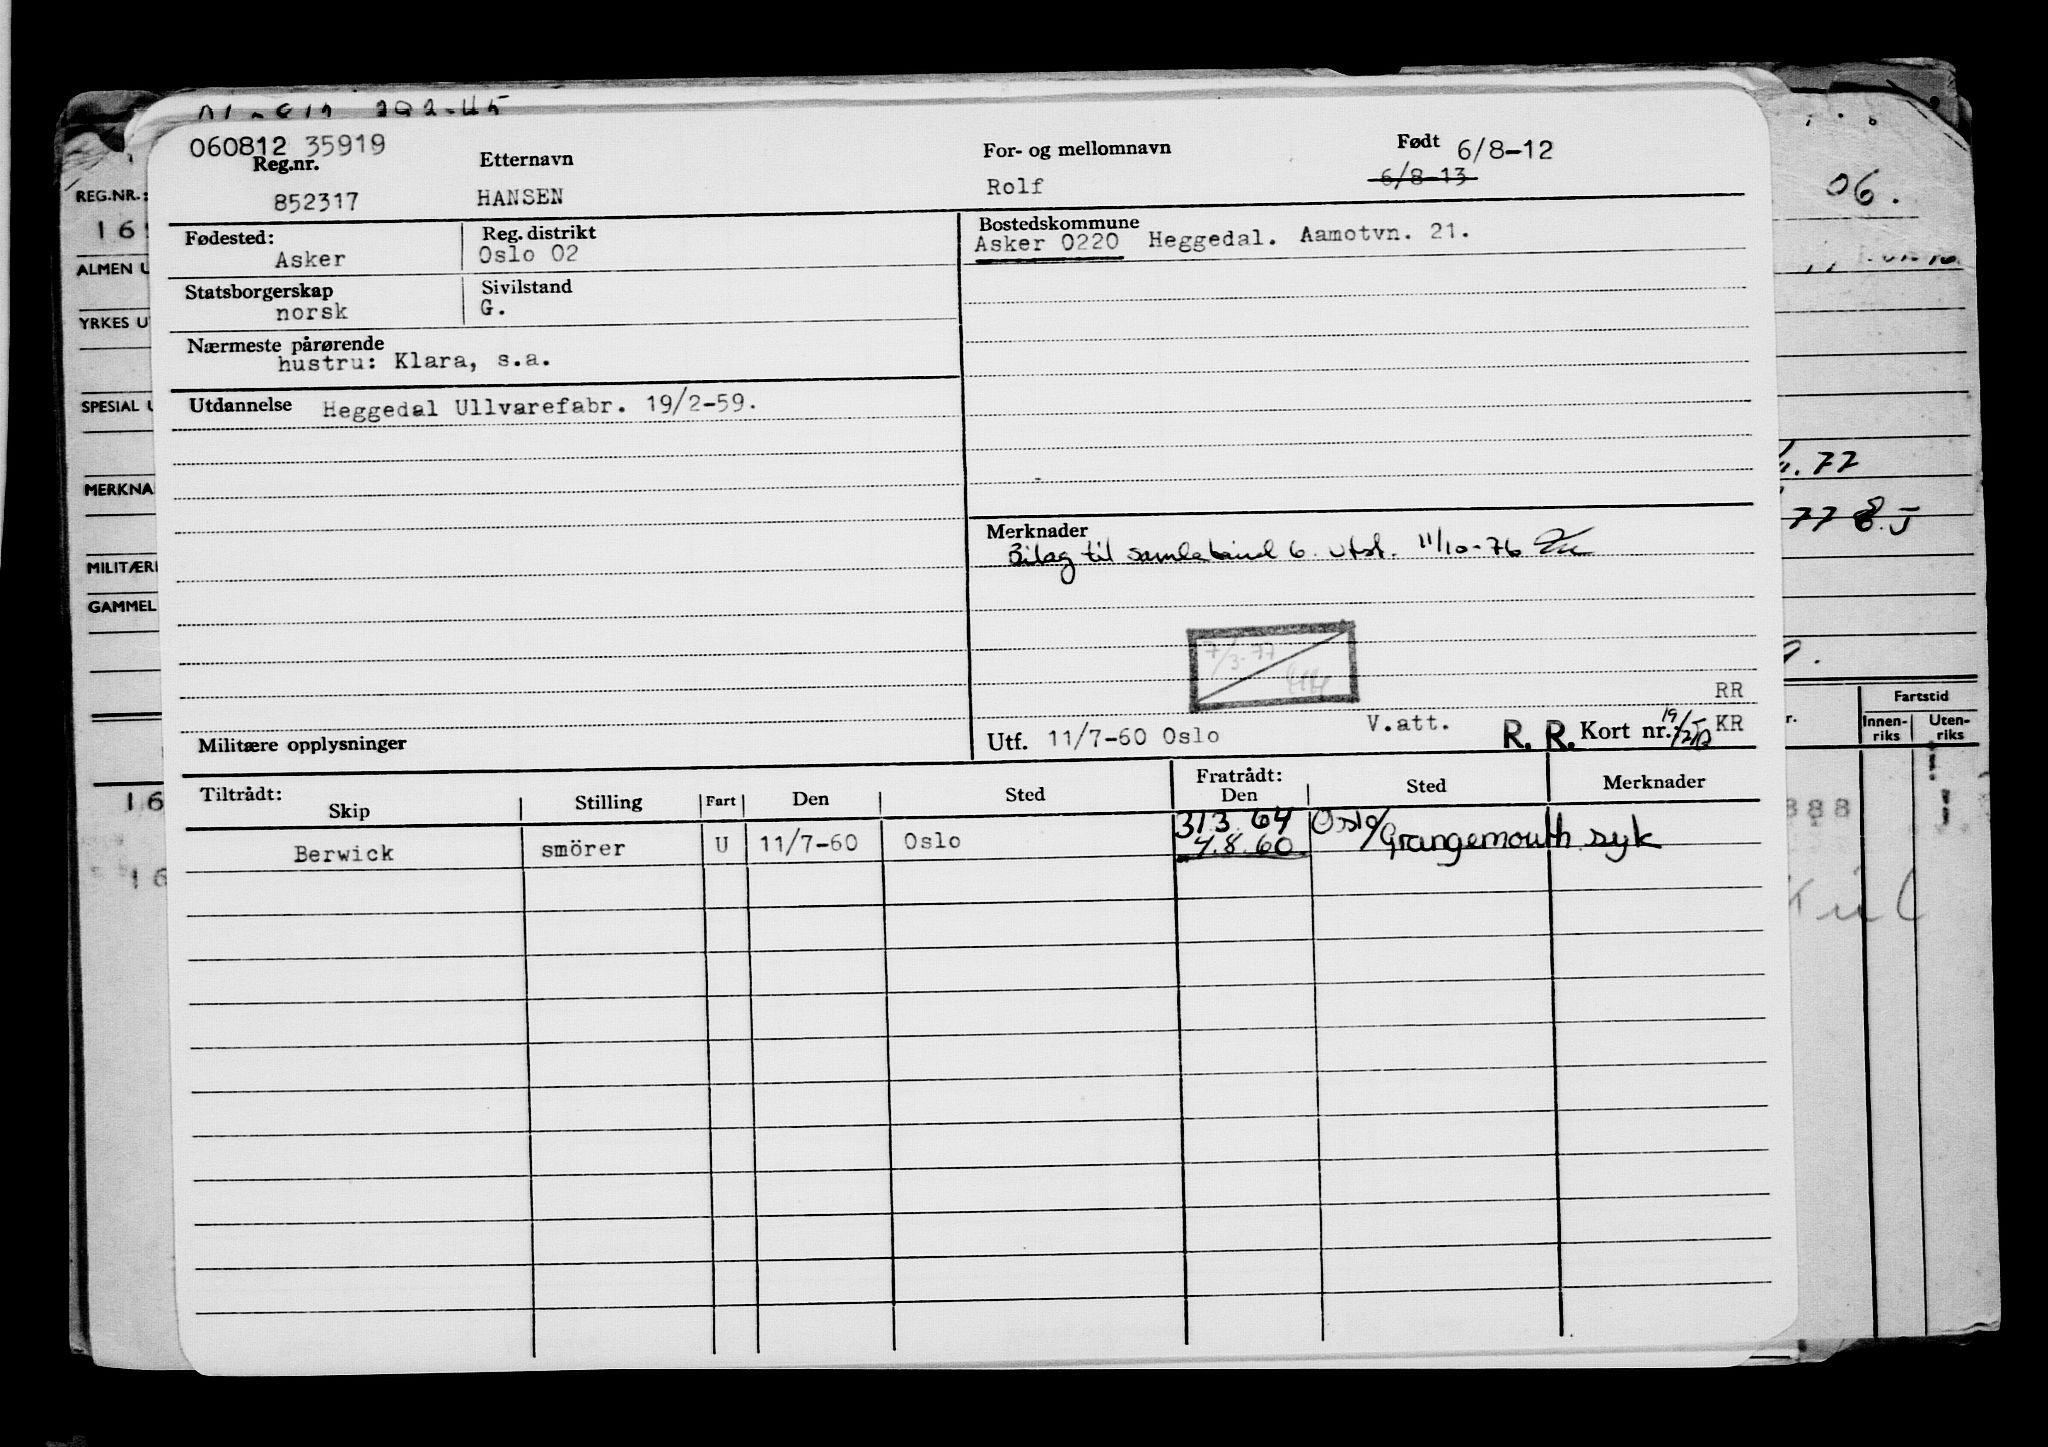 060812 35919
Reg.nr. Etternavn For- og mellomnavn Født 6/8-12
852317 HANSEN Rolf 6/8-13
Fødested: Reg. distrikt Bostedskommune
Asker Oslo 02 Asker 0220 Heggedal. Aamotvn. 21.
Statsborgerskap Sivilstand
norsk G.
Nærmeste pårørende
hustru: Klara, s.a.
Utdannelse Heggedal Ullvarefabr. 19/2-59.
Merknader
Bilag til samlebind 6. utst. 11/10-76
7/3-77
RR
Militære opplysninger Utf. 11/7-60 Oslo V.att. R. R. Kort nr.: KR
Tiltrådt: Fratrådt:
Skip Stilling Fart Den Sted Den Sted Merknader
31.3.64 Oslo/
Berwick smörer U 11/7-60 Oslo 4.8.60. Grangemouth syk
REG.NR.:
16
ALMEN U
YRKES U
SPESIAL U
MERKNA
MILITÆRE
GAMMEL
16
16
06.
77
77 8.J
Fartstid
Innen-riks Uten-riks
888